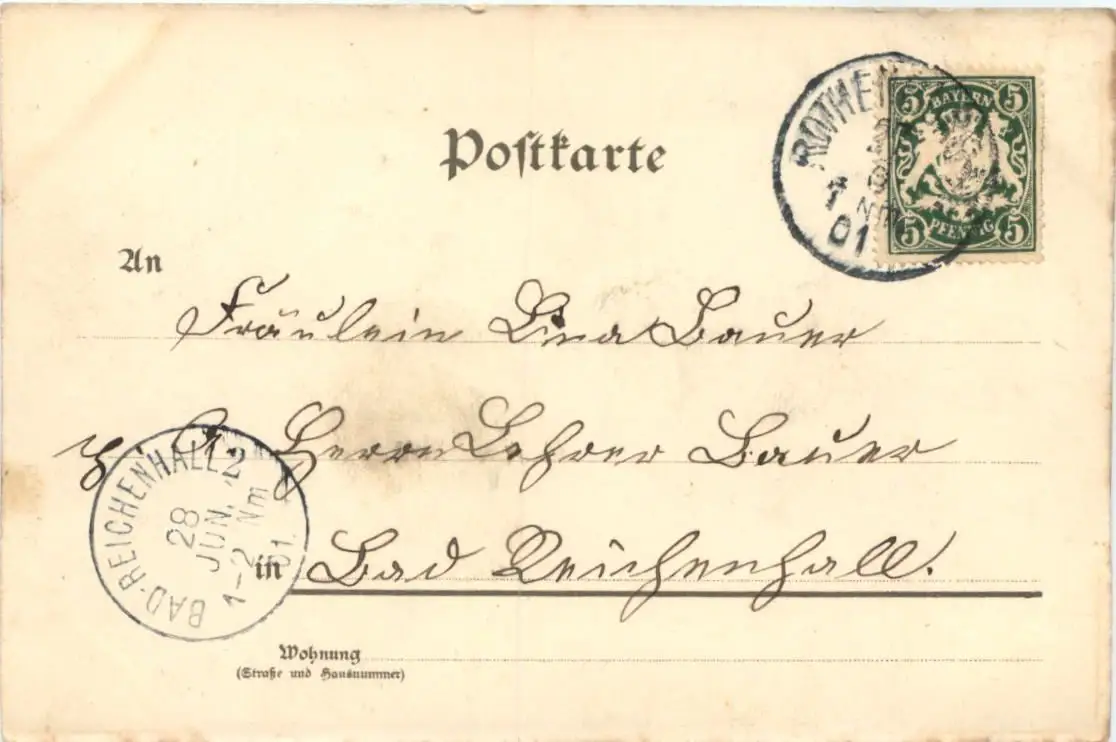 Postkarte
5 BAYERN 5
5 PFENNIG 5
NM
01
An
Fräulein Lina Bauer
p. A. Herrn Lehrer Bauer
BAD-REICHENHALL 2
28
JUN.
1-2 Nm
01.
in Bad Reichenhall.
Wohnung
(Straße und Hausnummer)